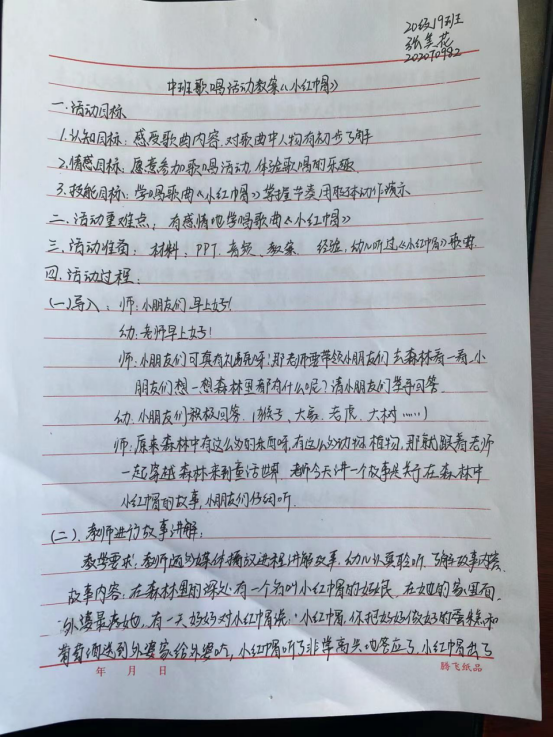 20级19班
张笑花
202070982
中班歌唱活动教案《小红帽》
一.活动目标
1.认知目标:感受歌曲内容.对歌曲中人物有初步了解
2.情感目标:愿意参加歌唱活动.体验歌唱的乐趣
3.技能目标:学唱歌曲《小红帽》掌握节奏用肢体动作演示
二.活动重难点:有感情地学唱歌曲《小红帽》
三.活动准备:材料:PPT.音频、教案. 经验:幼儿听过《小红帽》歌曲.
四.活动过程:
(一)导入:师:小朋友们早上好!
幼:老师早上好!
师:小朋友们可真有礼貌呀!那老师要带领小朋友们去森林看一看.小
朋友们想一想森林里都有什么呢?请小朋友们举手回答.
幼:小朋友们积极回答.(猴子、大象、老虎、大树……)
师:原来森林中有这么多的东西呀.有这么多动物植物,那就跟着老师
一起穿越森林来到童话世界.老师今天讲一个故事是关于在森林中
小红帽的故事,小朋友们仔细听.
(二).教师进行故事讲解:
教学要求:教师通过多媒体播放进程讲解故事.幼儿认真聆听.了解故事内容.
故事内容:在森林里的深处有一个名叫小红帽的姑娘.在她的家里面
外婆最疼她,有一天妈妈对小红帽说:"小红帽,你把妈妈做好的蛋糕和
葡萄酒送到外婆家给外婆吃,小红帽听了非常高兴地答应了.小红帽出了
年 月 日
腾飞纸品